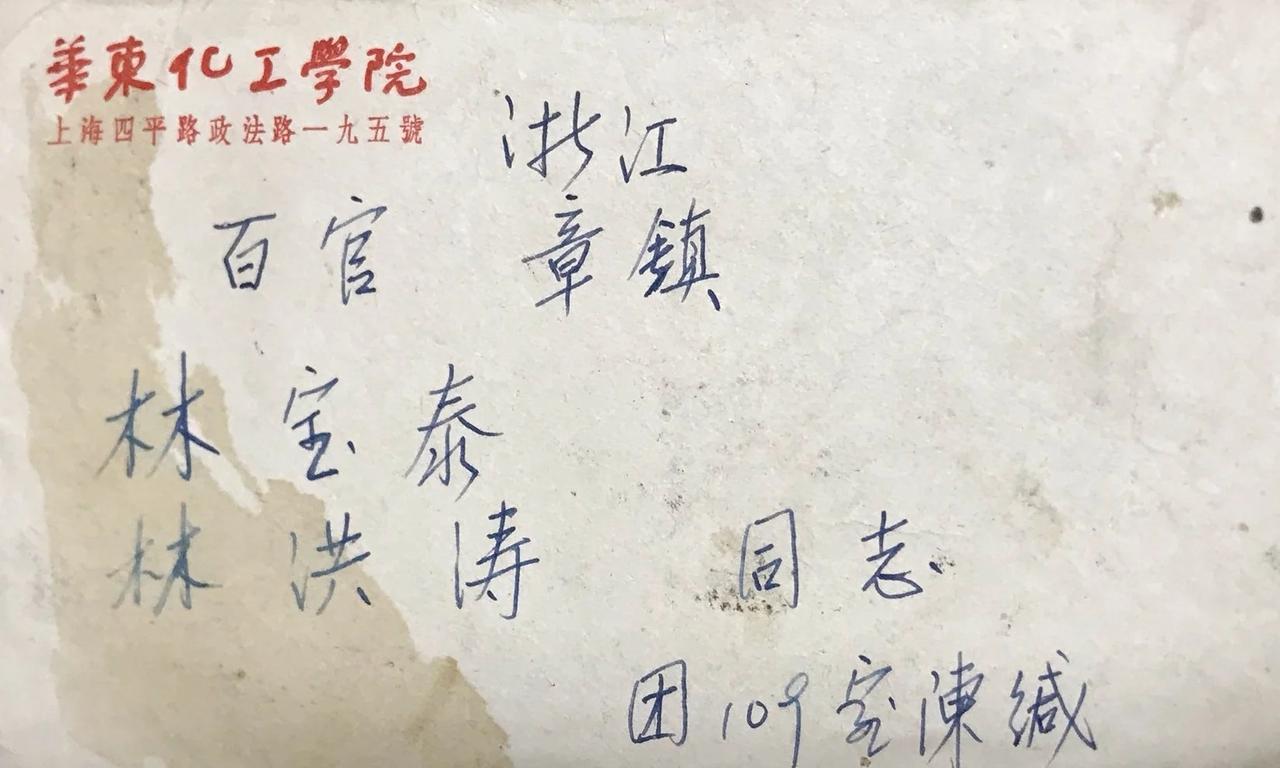 華東化工學院
上海四平路政法路一九五號
浙江
百官 章鎮
林宝泰
林洪涛 同志
团109室陳缄